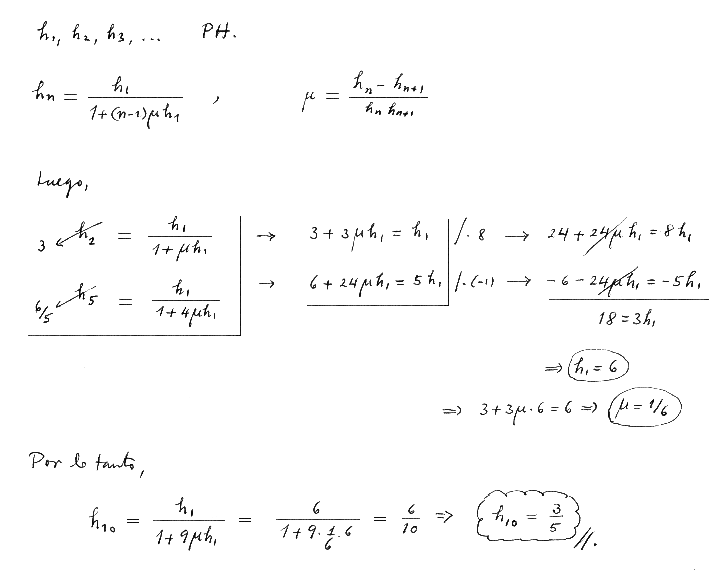 h₁, h₂, h₃, ... PH.
hn = h₁ / (1+(n-1)μh₁) , μ = (hn - hn+1) / (hn hn+1)
Luego,
3 ↙ h₂ = h₁ / (1+μh₁) → 3+3μh₁ = h₁ /·8 → 24+24μh₁ = 8h₁
6/5 ↙ h₅ = h₁ / (1+4μh₁) → 6+24μh₁ = 5h₁ /·(-1) → -6-24μh₁ = -5h₁
18 = 3h₁
⇒ h₁ = 6
⇒ 3+3μ·6 = 6 ⇒ μ = 1/6
Por lo tanto,
h₁₀ = h₁ / (1+9μh₁) = 6 / (1+9·1/6·6) = 6/10 ⇒ h₁₀ = 3/5 //.